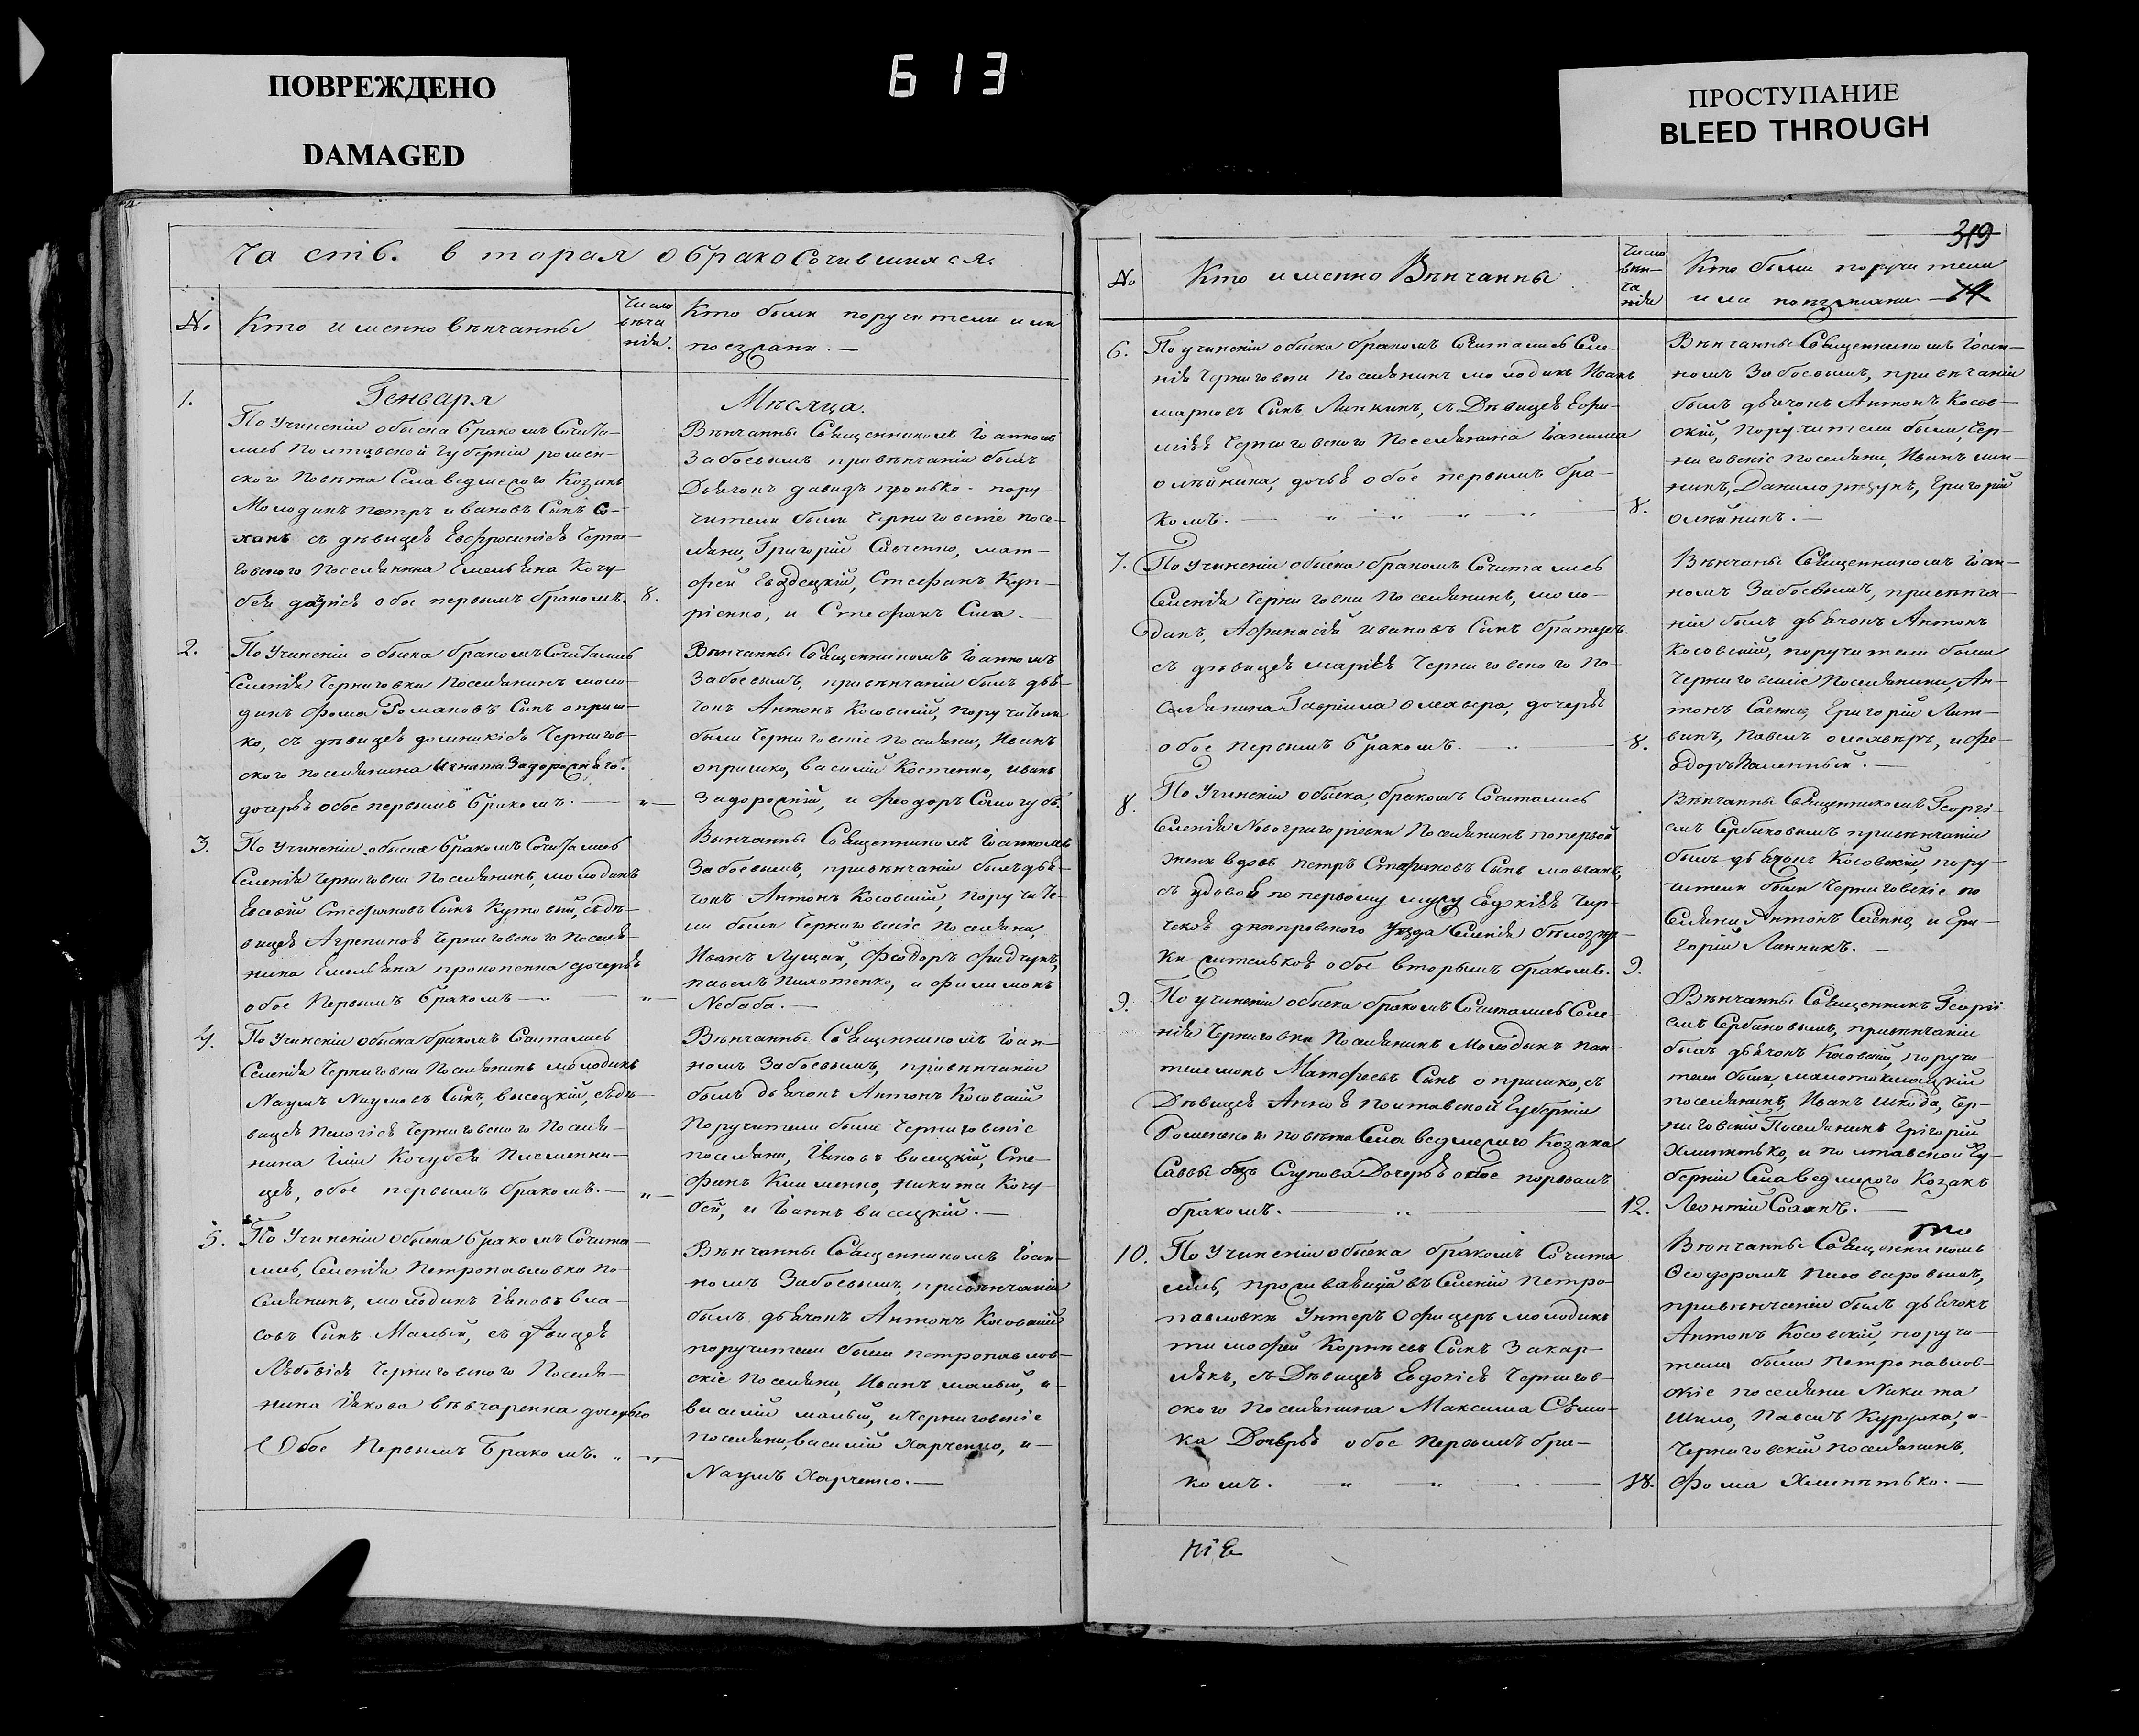 ПОВРЕЖДЕНО
DAMAGED
613
ПРОСТУПАНИЕ
BLEED THROUGH
Часть. вторая о бракосочившихся.
№
Кто именно вѣнчанны
Число
вѣнча
нія.
Кто были поручители или
поезжани. —
1.
Генваря
По Учиненіи обыска бракомъ Сочита-
лись Полтавской Губерніи ромен-
ского Повѣта Села ведмежого Козакъ
Молодикъ петръ ивановъ Сынъ Со-
ханъ съ дѣвицею Евфросиніею Черни-
говского Поселянина Емельяна Кочу-
бея обое первымъ бракомъ.
8.
Мѣсяца.
Вѣнчанны Священникомъ Іоанномъ
Забоевымъ привѣнчаніи былъ
Дьячокъ давидъ пору-
чители были Черниговскіе посе-
ляни, Григорій Савченко, мат-
фей Стефанъ Куп-
рѣенко, и Стефанъ Сила. —
2.
По Учиненіи обыска бракомъ Сочитались
Селенія Черниговки Поселянинъ моло-
дикъ Фома Романовъ Сынъ оприш-
ко, съ дѣвицею домникіею Чернигов-
ского поселянина Игната Задорожнего.
дочерью обое первымъ бракомъ. —
"—
Вѣнчанны Священникомъ Іоанномъ
Забоевымъ, привѣнчаніи былъ дья-
чокъ Антонъ Косовскій, поручители
были Черниговскіе Поселяни, Иванъ
опришко, василій Костенко, иванъ
Задорожній, и феодоръ Самогубъ.
3.
По Учиненіи обыска бракомъ Сочитались
Селенія Черниговки Поселянинъ, молодикъ
Евсевій Стефановъ Сынъ Кутовый, съдѣ-
вицею Агрепиною Черниговского Поселя-
нина Емельяна прокопенка дочерью
обое Первымъ бракомъ —
"—
Вѣнчанны Священникомъ Іоанномъ
Забоевымъ, привѣнчаніи былъ дья-
чокъ Антонъ Косовскій, поручите-
ли были Черниговскіе Поселяни,
Иванъ Лущай, феодоръ фидчунъ,
павелъ Пилотенко, и филимонъ
Nебаба. —
4.
По Учиненіи обыска бракомъ Сочитались
Селенія Черниговки Поселянинъ молодикъ
Nаумъ Nаумовъ Сынъ, высоцкій, съдѣ-
вицею Пелагіею Черниговского Поселя-
нина Іліи Кочубея Племенни-
цею, обое первымъ бракомъ. —
"—
Вѣнчанны Священникомъ Іоан-
номъ Забоевымъ, привѣнчаніи
былъ дьячокъ Антонъ Косовскій
Поручители были Черниговскіе
поселяни, Яковъ висоцкій, Сте-
фанъ Клименко, никита Кочу-
бей, и Іоаннъ висоцкій. —
5.
По Учиненіи обыска бракомъ Сочита-
лись, Селенія Петропавловки по-
Селянинъ, молодикъ Яковъ вла-
совъ Сынъ Малый, съ дѣвицею
Любовіею Черниговского Поселя-
нина Якова дочерью
Обое Первымъ Бракомъ. "
"—
Вѣнчанны Священникомъ Іоан-
номъ Забоевымъ, привѣнчаніи
былъ дьячокъ Антонъ Косовскій
поручители были петропавлов-
скіе поселяни, Иванъ малый, и-
василій малый, иЧерниговскіе
поселяни василій Харченко, и-
Nаумъ Харченко. —
319
№
Кто именно Вѣнчанны
Число
вѣн-
ча
нія
Кто были поручители
или поезжани —
6.
По учиненіи обыска бракомъ Сочитались Селе-
нія Черниговки Поселянинъ молодикъ Иванъ
марковъ Сынъ Линникъ, съ Дѣвицею Ефи-
міею Черниговского Поселянина Іоакима
олѣйника, дочью обое первымъ бра-
комъ. —
8.
Вѣнчанны Священникомъ Іоан-
номъ Забоевымъ, привѣнчаніи
былъ дьячокъ Антонъ Косов-
скій, Поручители были, Чер-
ниговскіе поселяни, Иванъ лин-
никъ, Данило Григорій
олѣйникъ. —
7.
По Учиненіи обыска бракомъ Сочитались
Селенія Черниговки Поселянинъ, моло-
дикъ, Афанасій ивановъ Сынъ
съ дѣвицею маріею Черниговского По-
селянина Гавріила дочерью
обое первымъ бракомъ. —
8.
Вѣнчаны Священникомъ Іоан-
номъ Забоевымъ, привѣнча-
ніи былъ дьячокъ Антонъ
Косовскій, поручители были
Черниговскіе Поселянини, Ан-
тонъ Саенко, Григорій Лин-
никъ, Павелъ и Фе-
одоръ Каленный. —
8.
По Учиненіи обыска, бракомъ Сочитались
Селенія Nовогригоріевки Поселянинъ попервой
жени вдовъ петръ Стефановъ Сынъ мовчанъ,
съ удовою по первому мужу Евдокіею Чир-
ской днѣпровского Уезда Селенія бѣлозер-
ки жителькою обое вторымъ бракомъ.
9.
Вѣнчанны Священникомъ Георгі-
емъ Сербиновымъ привѣнчаніи
былъ дьячокъ Косовскій, пору-
чители были Черниговскіе по
Селяни Антонъ Саенко, и Гри-
горій Линникъ. —
9.
По учиненіи обыска бракомъ Сочитались Селе-
нія Черниговки Поселянинъ Молодикъ пан-
телемонъ Матфеевъ Сынъ опришко, съ
Дѣвицею Анною Полтавской Губерніи
Роменского повѣта Села ведмежого Козака
Саввы Дочерью обое первымъ
бракомъ. —
12.
Вѣнчанны Священникъ Георгі
емъ Сербиновымъ, привѣнчаніи
былъ дьячокъ Косовскій, поручи-
тели были, малотокмацкій
поселянинъ, Иванъ шкода, Чер-
ниговскій Поселянинъ Григорій
Хлипитько, и полтавской Гу-
берніи Села ведмежого Козакъ
Леонтій Соханъ. —
10.
По Учиненіи обыска бракомъ Сочита
лись, проживающій въ Селеніи Петро-
павловки Унтеръ Офицеръ молодикъ
тимофей Корнѣевъ Сынъ Закар-
люкъ, съ Дѣвицею Евдокіею Чернигов-
ского Поселянина Максима
Дочерью обое первымъ бра-
комъ. —
18.
Вѣнчанны Священникомъ
Феодоромъ Пивоваровымъ,
привѣнченіи былъ дьячокъ
Антонъ Косовскій, поручи-
тели были Петропавлов-
скіе поселяни Никита
Шило, Павелъ и-
Черниговскій поселянинъ,
Фома Хлипитько. —